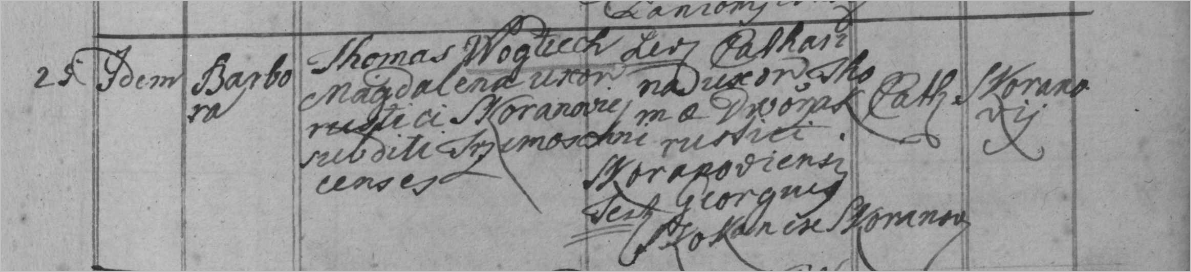 25 Idem Barbo
ra
Thomas Wogtiech
Magdalena uxor
rustici Skoranovij
subditi
censes
Levj Cathari
na uxor Tho
mæ Dwořak
rustici
Skoranoviensi
Georgius
Test
Skoranov
Cath
Skorano
vij